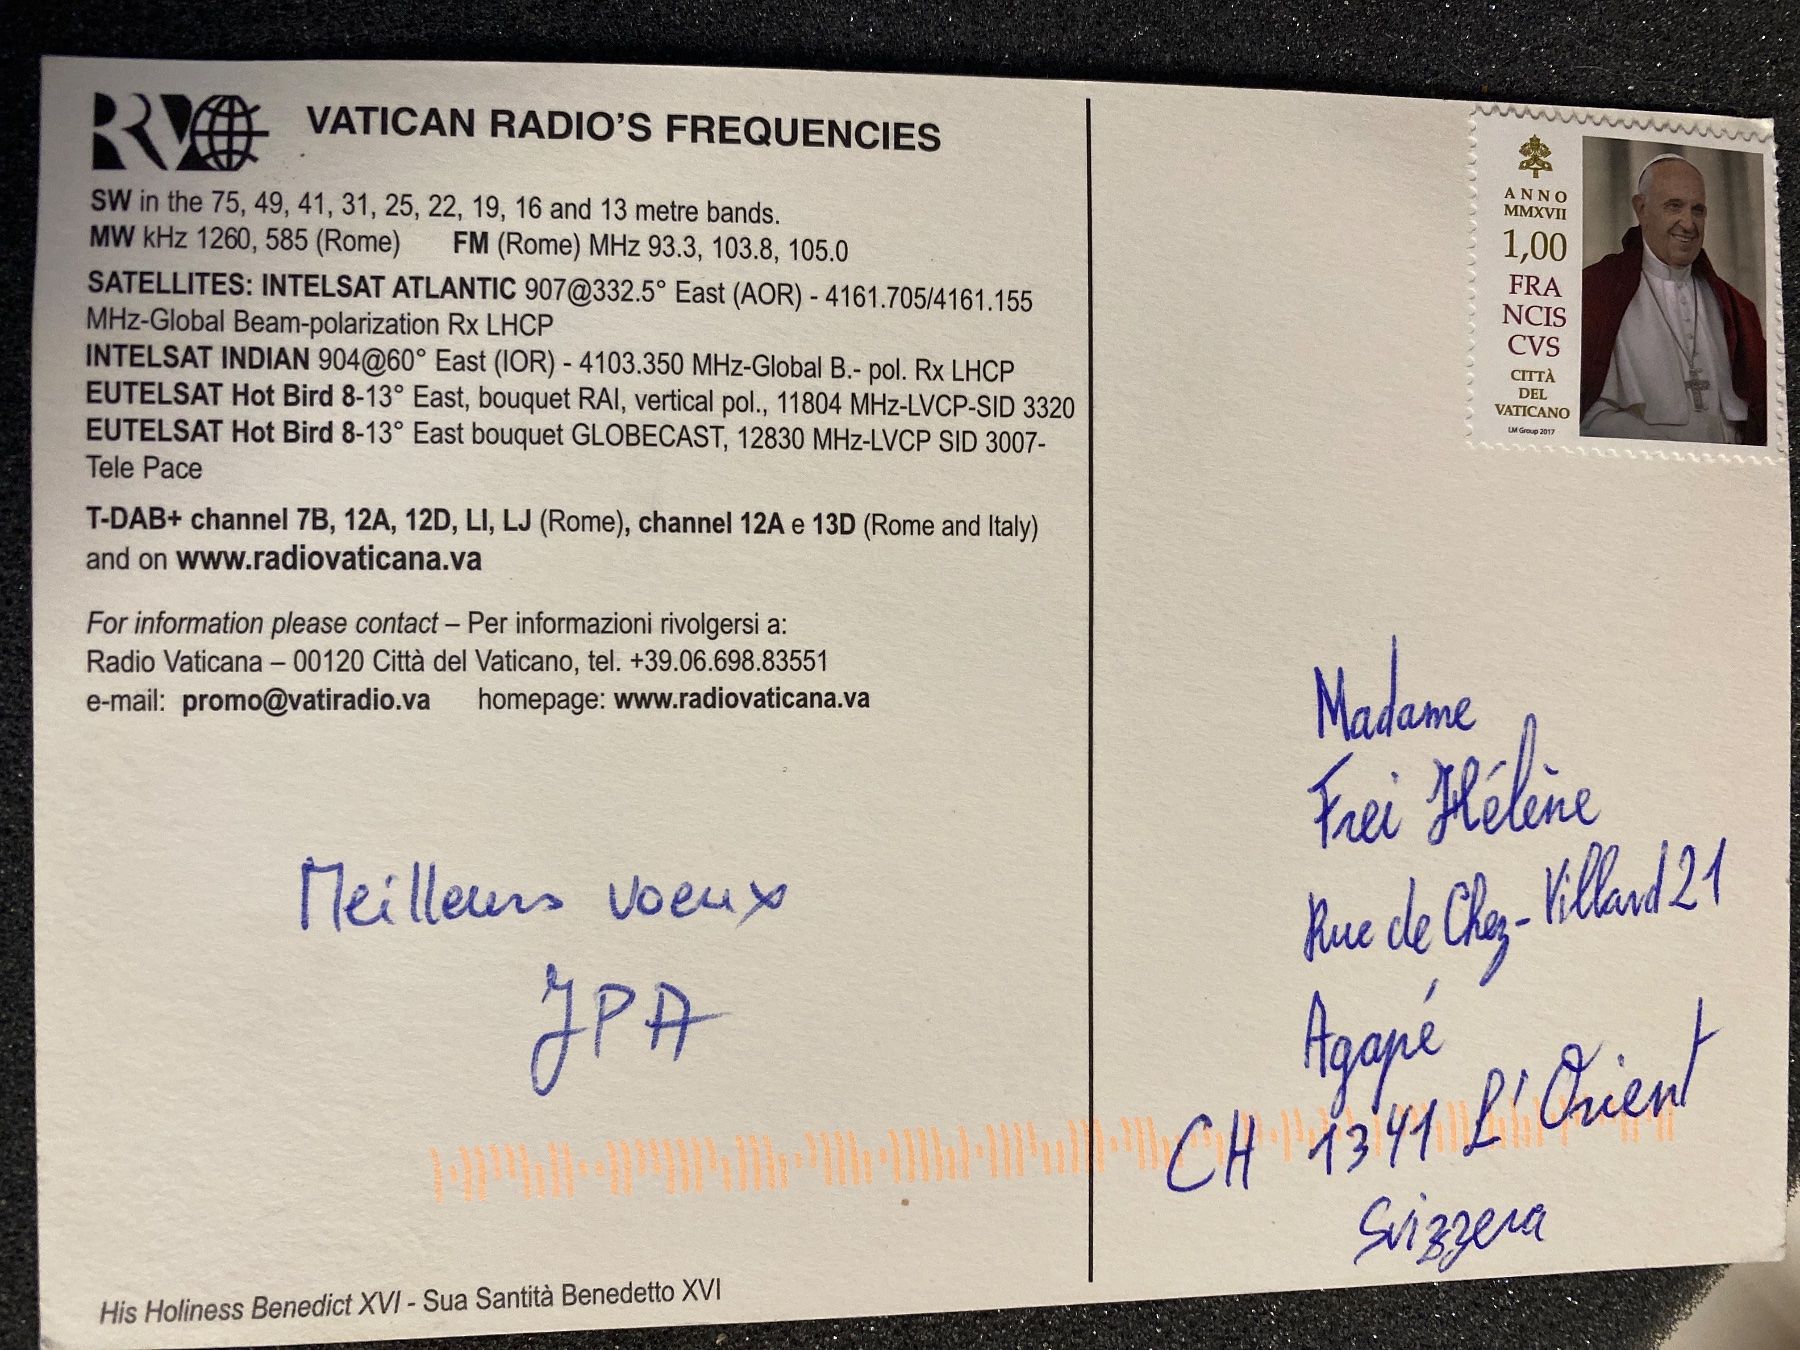 RV VATICAN RADIO'S FREQUENCIES
SW in the 75, 49, 41, 31, 25, 22, 19, 16 and 13 metre bands.
MW kHz 1260, 585 (Rome) FM (Rome) MHz 93.3, 103.8, 105.0
SATELLITES: INTELSAT ATLANTIC 907@332.5° East (AOR) - 4161.705/4161.155
MHz-Global Beam-polarization Rx LHCP
INTELSAT INDIAN 904@60° East (IOR) - 4103.350 MHz-Global B.- pol. Rx LHCP
EUTELSAT Hot Bird 8-13° East, bouquet RAI, vertical pol., 11804 MHz-LVCP-SID 3320
EUTELSAT Hot Bird 8-13° East bouquet GLOBECAST, 12830 MHz-LVCP SID 3007-
Tele Pace
T-DAB+ channel 7B, 12A, 12D, LI, LJ (Rome), channel 12A e 13D (Rome and Italy)
and on www.radiovaticana.va
For information please contact – Per informazioni rivolgersi a:
Radio Vaticana – 00120 Città del Vaticano, tel. +39.06.698.83551
e-mail: promo@vatiradio.va homepage: www.radiovaticana.va
Meilleurs voeux
JPA
His Holiness Benedict XVI - Sua Santità Benedetto XVI
ANNO
MMXVII
1,00
FRA
NCIS
CVS
CITTÀ
DEL
VATICANO
LM Group 2017
Madame
Frei Hélène
Rue de Chez-Villard 21
Agapé
CH 1341 L'Orient
Svizzera